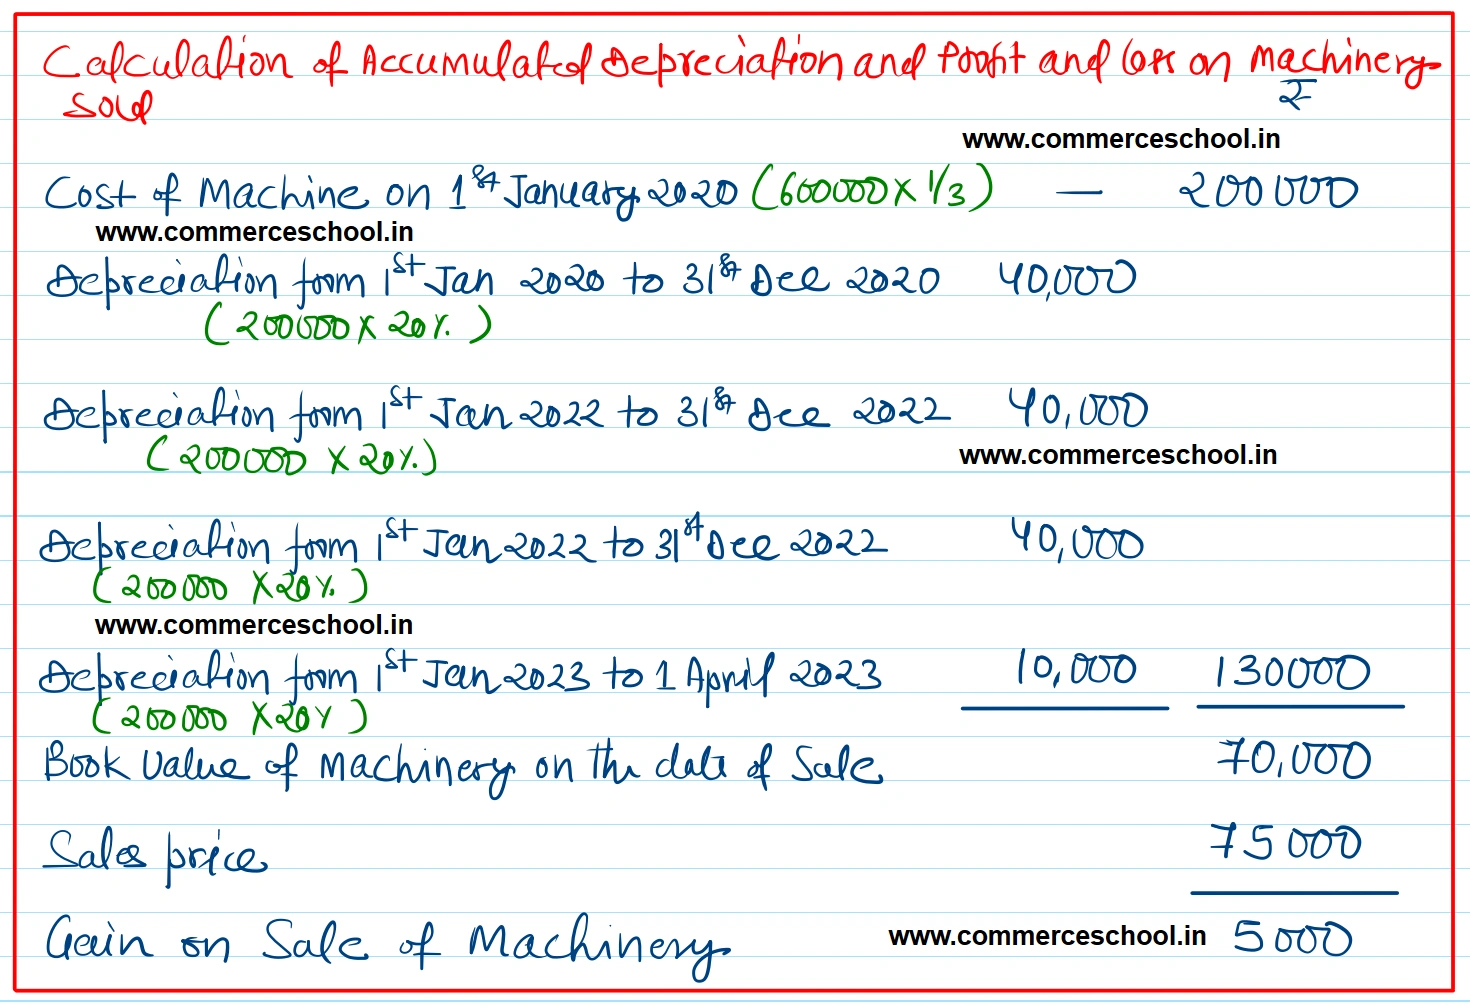 Calculation of Accumulated Depreciation and Profit and loss on Machinery
Sold
₹
www.commerceschool.in
Cost of Machine on 1st January 2020 (600000 X 1/3) — 200000
www.commerceschool.in
Depreciation from 1st Jan 2020 to 31st Dec 2020 40,000
(200000 X 20%)
Depreciation from 1st Jan 2022 to 31st Dec 2022 40,000
(200000 X 20%)
www.commerceschool.in
Depreciation from 1st Jan 2022 to 31st Dec 2022 40,000
(200000 X 20%)
www.commerceschool.in
Depreciation from 1st Jan 2023 to 1 April 2023 10,000 130000
(200000 X 20%)
Book Value of Machinery on the date of Sale 70,000
Sales price 75000
Gain on Sale of Machinery www.commerceschool.in 5000